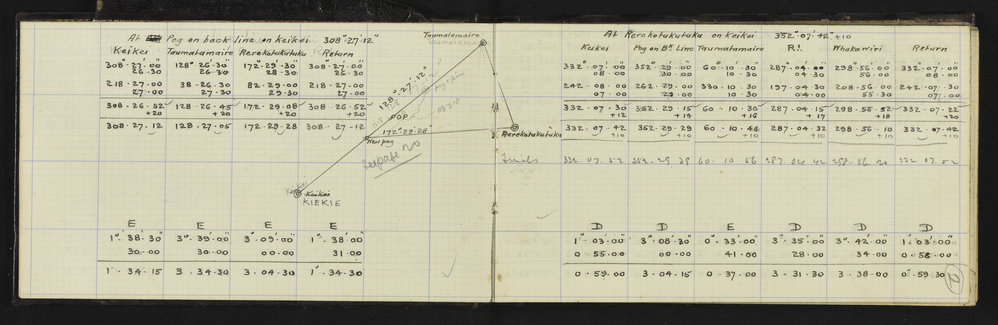 At Peg on back line on Keikei 308°·27'·12"
Keikei Taumatamaire Rerekotukutuku Return
308°·27'·00" 128°·26'·30" 172°·29'·30" 308°·27'·00"
26·30 26·30 28·30 26·30
218·27·00 38·26·30 82·29·00 218·27·00
27·00 27·30 29·30 27·00
308·26·52 128·26·45 172·29·08 308·26·52
+20 +20 +20 +20
308·27·12 128·27·05 172·29·28 308·27·12
Taumatamaire
Taumatamaire
128°·27'·12"
OOP
172°·29'·28"
New peg
See page 20
Rerekotukutuku
Keikei
KIEKIE
E E E E
1°·38'·30" 3°·39'·00" 3°·09'·00" 1°·38'·00"
30·00 30·00 00·00 31·00
1·34·15 3·34·30 3·04·30 1°·34·30
At Rerekotukutuku on Keikei 352°·07'·42" +10
Keikei Peg on Bk Line Taumatamaire R1. Whakarriri Return
332°·07'·00" 352°·29'·00" 60°·10'·30" 287°·04'·00" 298°·56'·00" 332°·07'·00"
08·00 30·00 10·30 04·30 56·00 08·00
242·08·00 262·29·00 330·10·30 197·04·30 208·56·00 242·07·30
07·00 29·00 10·30 04·00 55·30 07·00
332·07·30 352·29·15 60·10·30 287·04·15 298·55·52 332·07·22
+12 +14 +16 +17 +18 +20
332·07·42 352·29·29 60·10·46 287·04·32 298·56·10 332·07·42
+10 +10 +10 +10 +10 +10
Finals 332 07 52 352·29 39 60·10 56 287·04 42 298·56 20 332 07·52
D D E D D D
1°·03'·00" 3°·08'·30" 0°·33'·00" 3°·35'·00" 3°·42'·00" 1°·03'·00"
0·55·00 00·00 41·00 28·00 34·00 0·56·00
0·59·00 3·04·15 0·37·00 3·31·30 3·38·00 0°·59·30